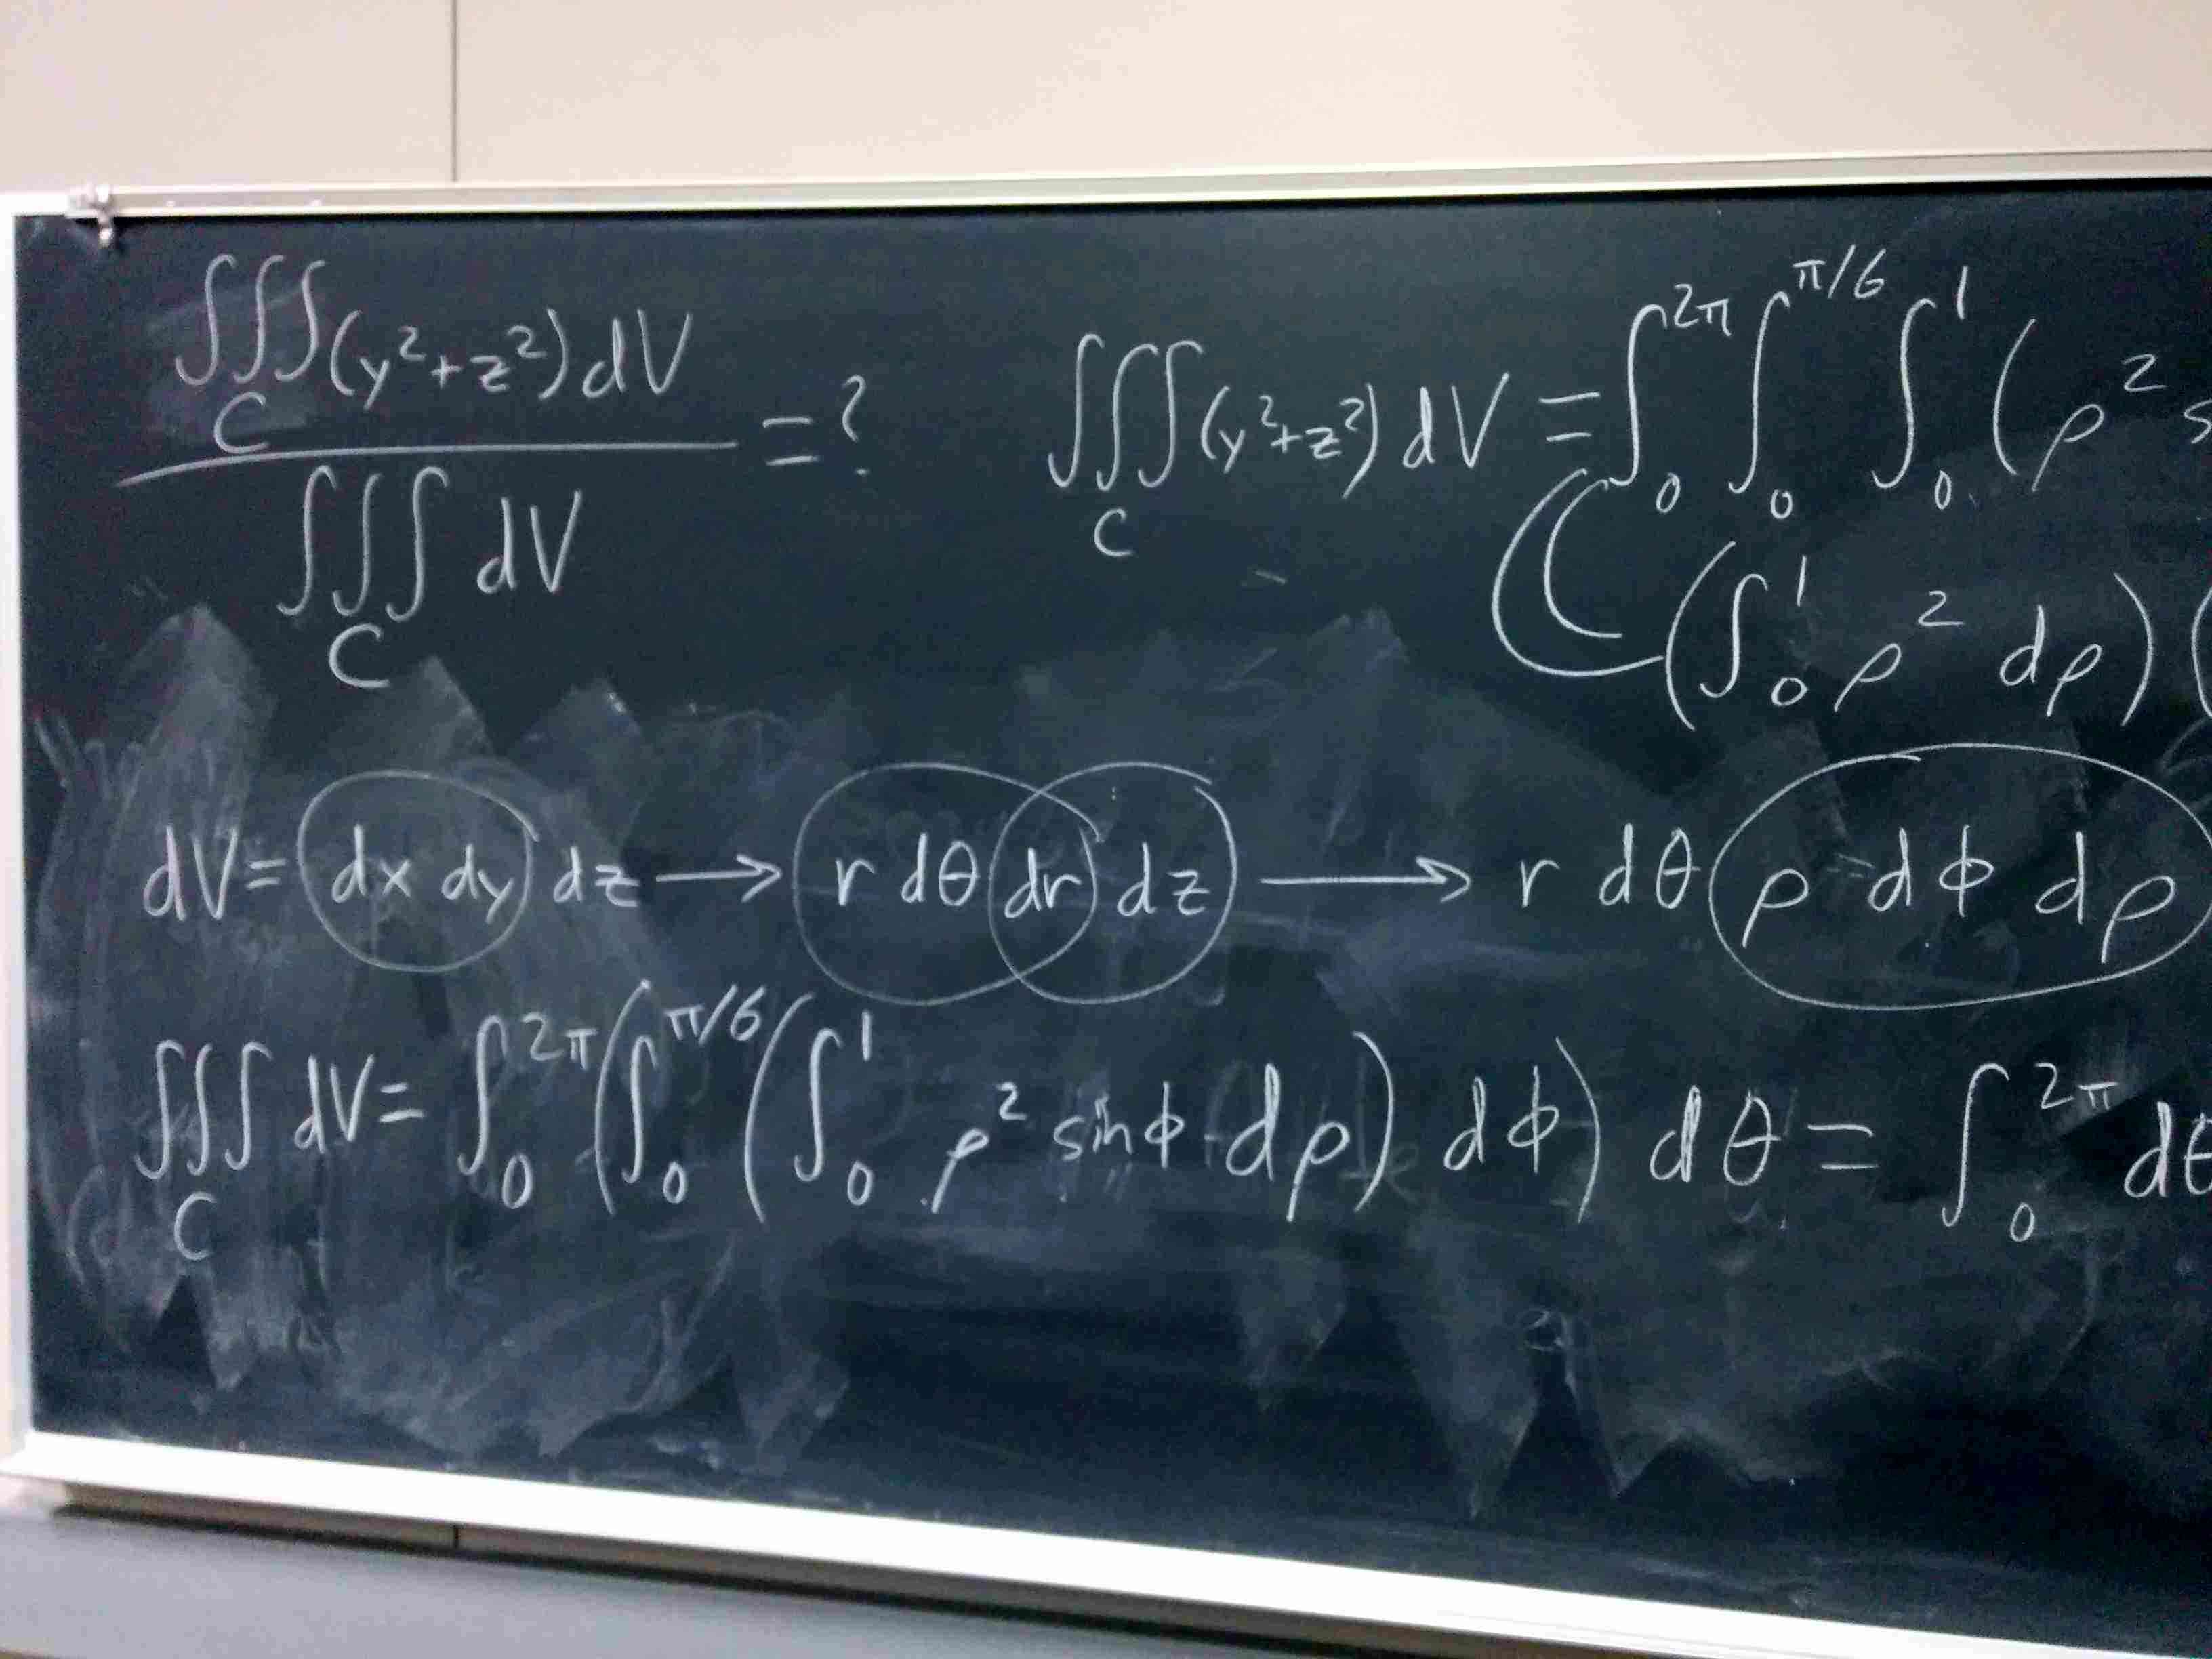 ∭_C (y²+z²) dV / ∭_C dV = ?
∭_C (y²+z²) dV = ∫₀^{2π} ∫₀^{π/6} ∫₀^1 (ρ² s
(∫₀^1 ρ² dρ) (
dV = dx dy dz → r dθ dr dz → r dθ ρ dϕ dρ
∭_C dV = ∫₀^{2π} (∫₀^{π/6} (∫₀^1 ρ² sinϕ dρ) dϕ) dθ = ∫₀^{2π} dθ